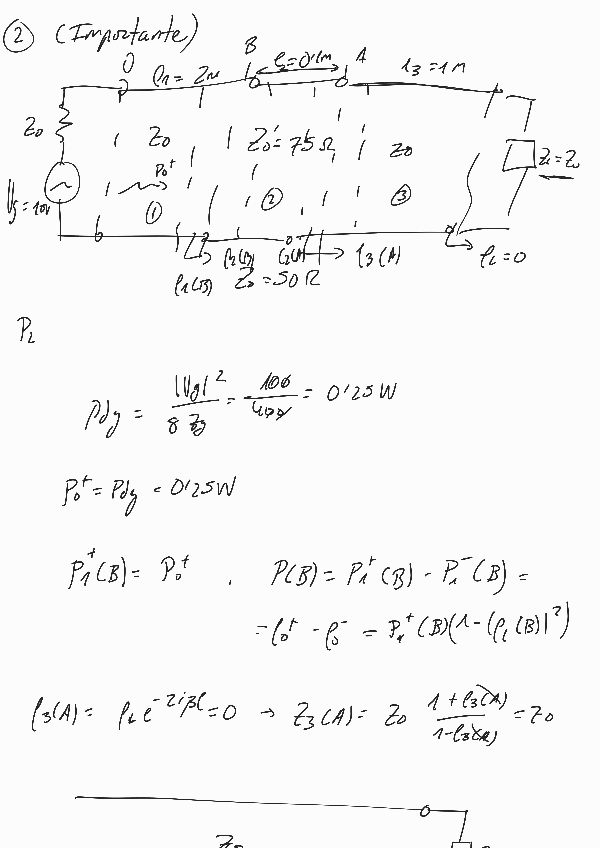 ② (Importante)
O B A
l1 = 2m l2 = 0'1m l3 = 1m
Z0 Z0 Z0' = 75 Ω Z0 ZL = Z0
P0+
Vg = 10V ① ② ③
ρ1(B) ρ2(B) ρ2(A) ρ3(A) ρL = 0
Z0 = 50 Ω
PL
Pdg = |Vg|² / 8 Zg = 100 / 400 = 0'25 W
P0+ = Pdg = 0'25 W
P1+(B) = P0+ . P(B) = P1+(B) - P1-(B) =
= P0+ - P0- = P1+(B)(1 - |ρ1(B)|²)
ρ3(A) = ρL e^-2jβl = 0 → Z3(A) = Z0 1 + ρ3(A) / 1 - ρ3(A) = Z0
Z0